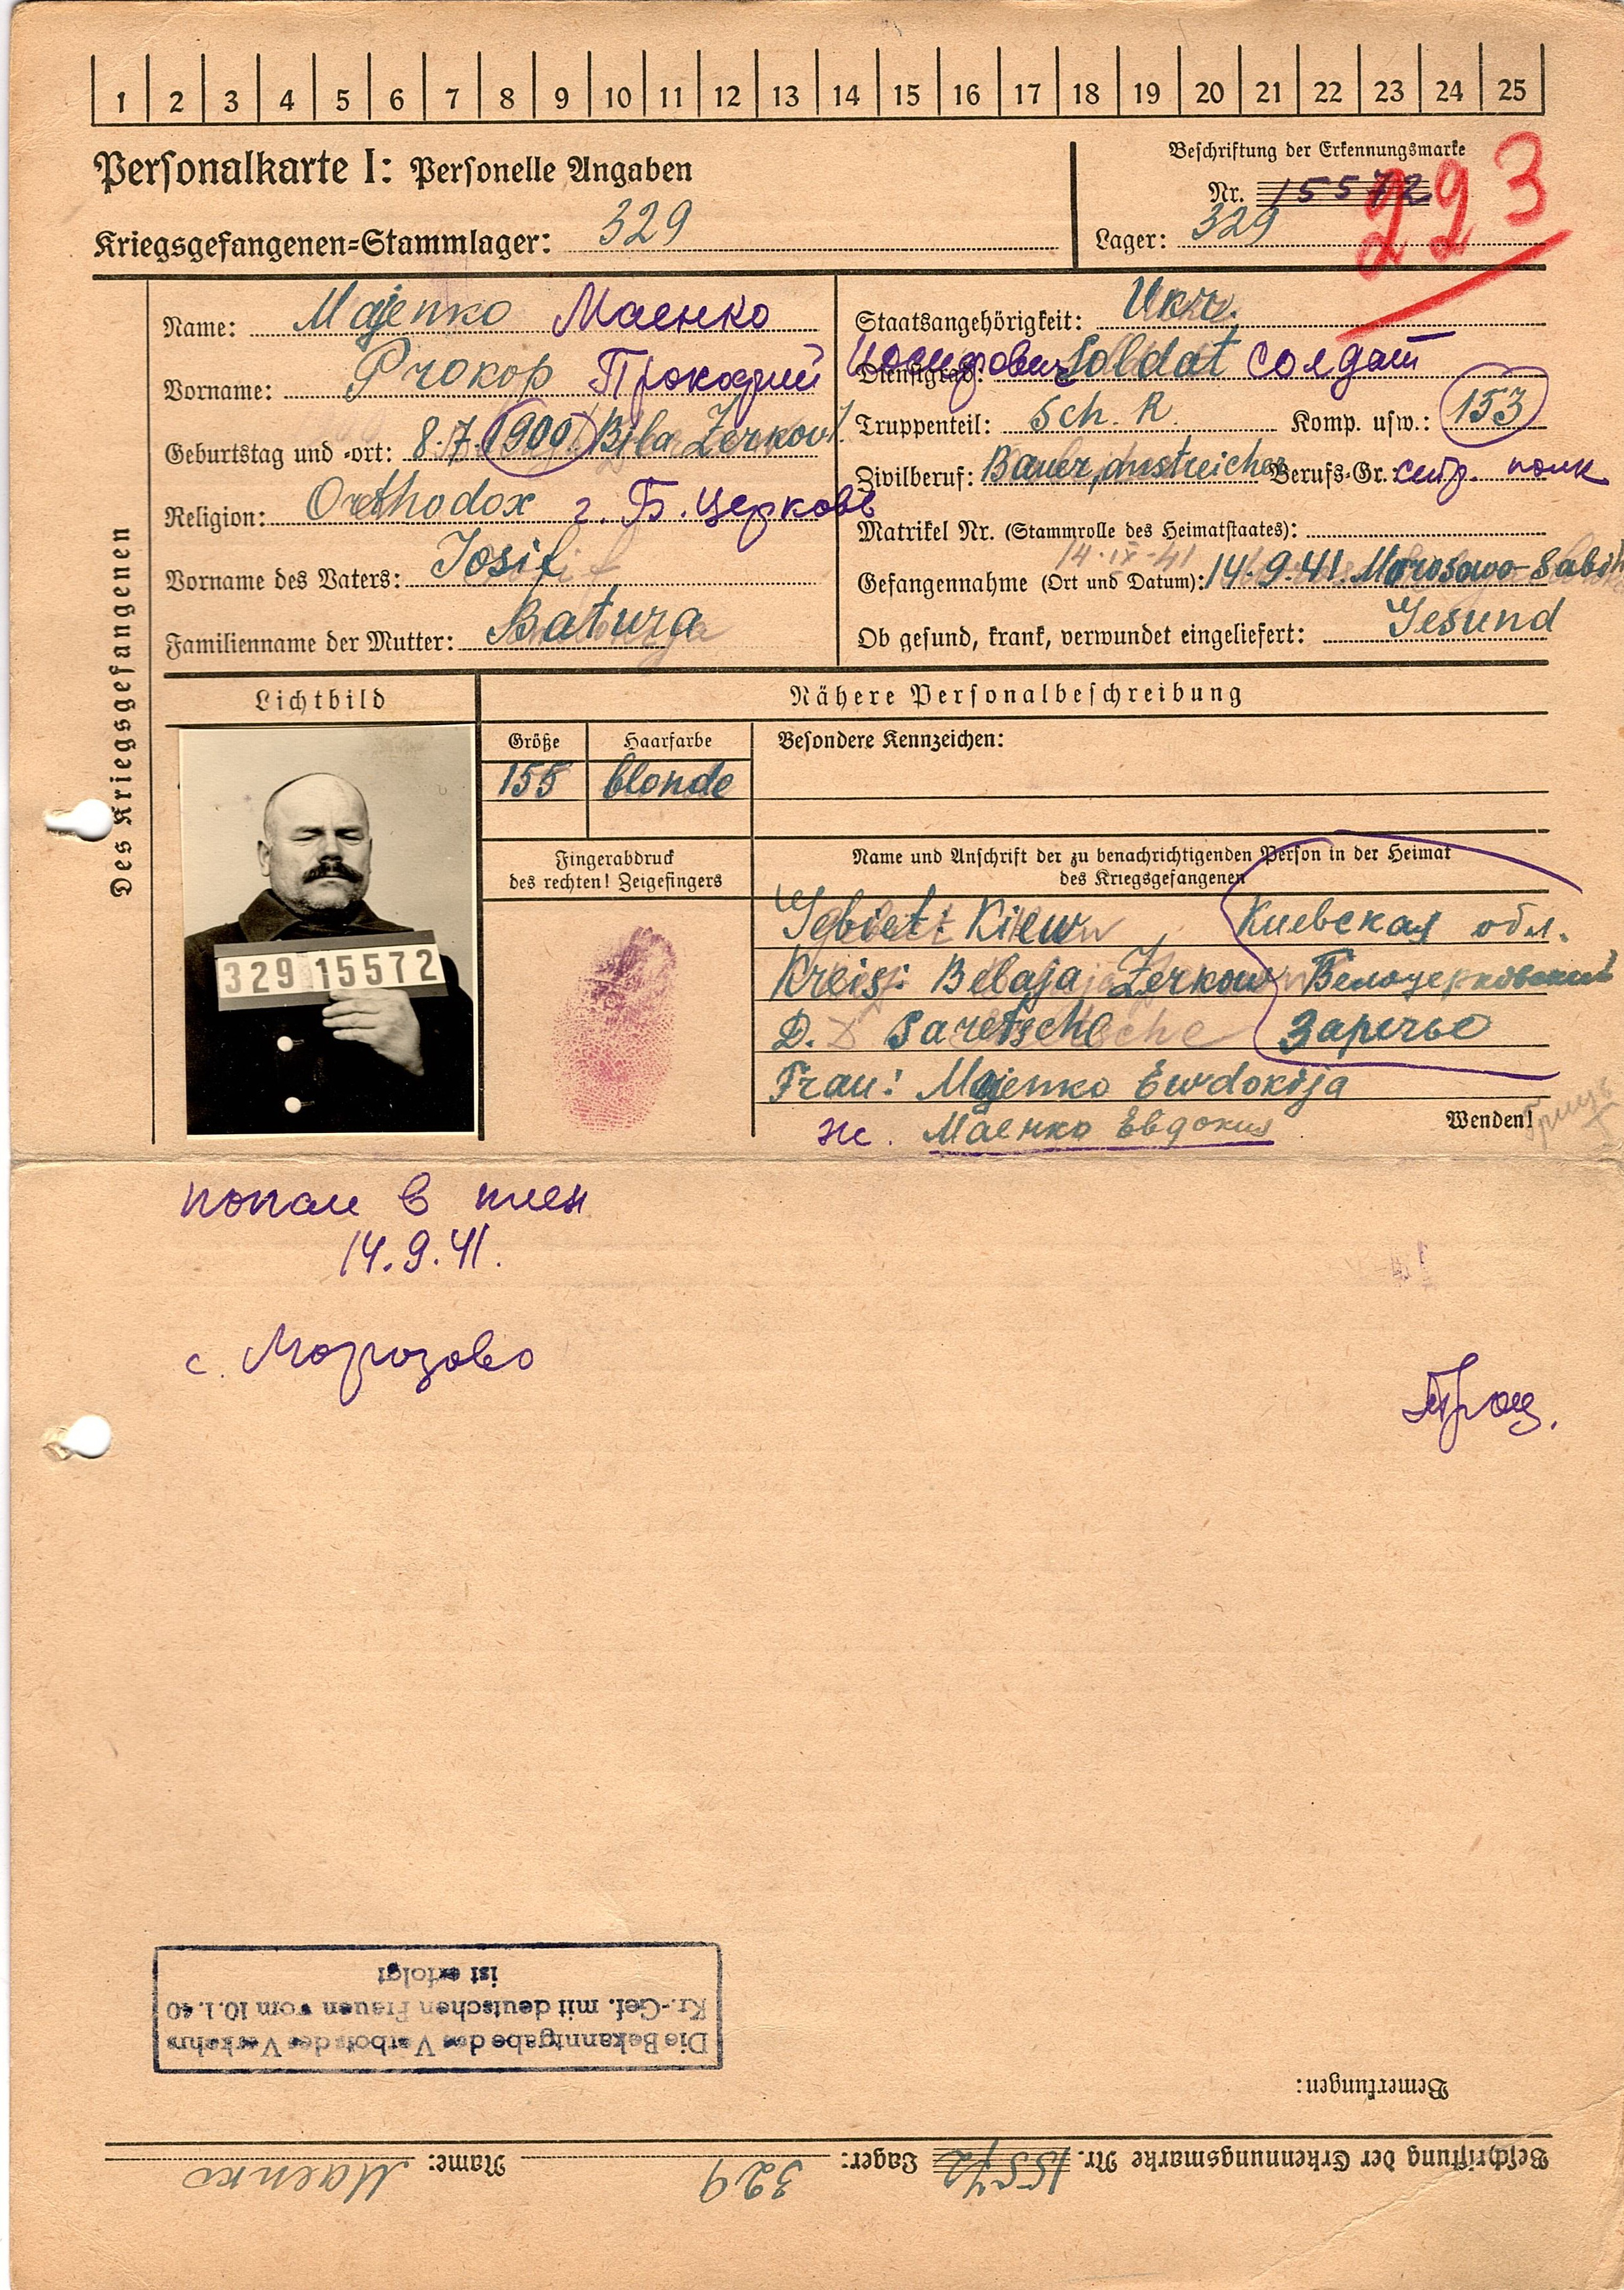 1 2 3 4 5 6 7 8 9 10 11 12 13 14 15 16 17 18 19 20 21 22 23 24 25
Personalkarte I: Personelle Angaben
Kriegsgefangenen-Stammlager: 329
Beschriftung der Erkennungsmarke
Nr. 15572
Lager: 329
223
Des Kriegsgefangenen
Name: Majenko Маенко
Vorname: Prokop Прокофий Иосифович
Geburtstag und -ort: 8.7.1900 Bila Zerkow
Religion: Orthodox г. Б. Церковь
Vorname des Vaters: Iosif
Familienname der Mutter: Batura
Staatsangehörigkeit: Ukr.
Dienstgrad: Soldat солдат
Truppenteil: Sch. R. Komp. usw.: 153
Zivilberuf: Bauer, Berufs-Gr.: полк
Matrikel Nr. (Stammrolle des Heimatstaates):
14.IX.41
Gefangennahme (Ort und Datum): 14.9.41. Morosowo-
Ob gesund, krank, verwundet eingeliefert: Gesund
Lichtbild
Nähere Personalbeschreibung
Größe
155
Haarfarbe
blonde
Besondere Kennzeichen:
329 15572
Fingerabdruck
des rechten! Zeigefingers
Name und Anschrift der zu benachrichtigenden Person in der Heimat
des Kriegsgefangenen
Gebiet: Kiew Киевская обл.
Kreis: Belaja Zerkow Белоцерковский
D. Saretsche Заречье
Frau: Majenko Ewdokija
ж. Маенко Евдокия
Wenden!
попал в плен
14.9.41.
с. Морозово
Die Bekanntgabe des Verbots des Verkehrs
Kr.-Gef. mit deutschen Frauen vom 10.1.40
ist erfolgt
Bemerkungen:
Beschriftung der Erkennungsmarke Nr. 15572 Lager: 329 Name: Маенко